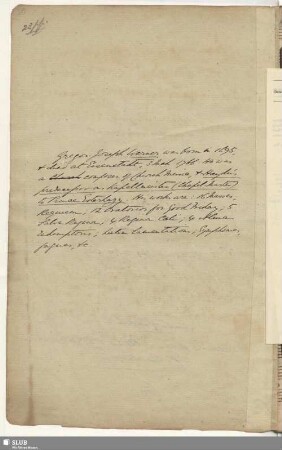 Gregor Joseph Werner was born in 1695,
& died at Eisenstadt, 3 March 1766. He was
a composer of Church Music, & Haydn's
predecessor as Kapellmeister (Chapel Master)
to Prince Esterhazy. His works are: Masses,
Requiem, 12 Oratorios for Good Friday, 5
Salve Regina, 4 Regina Celi, 4 Alma
Redemptoris, Latin Lamentation, Symphonies,
fugues, &c
SLUB
Wir führen Wissen.